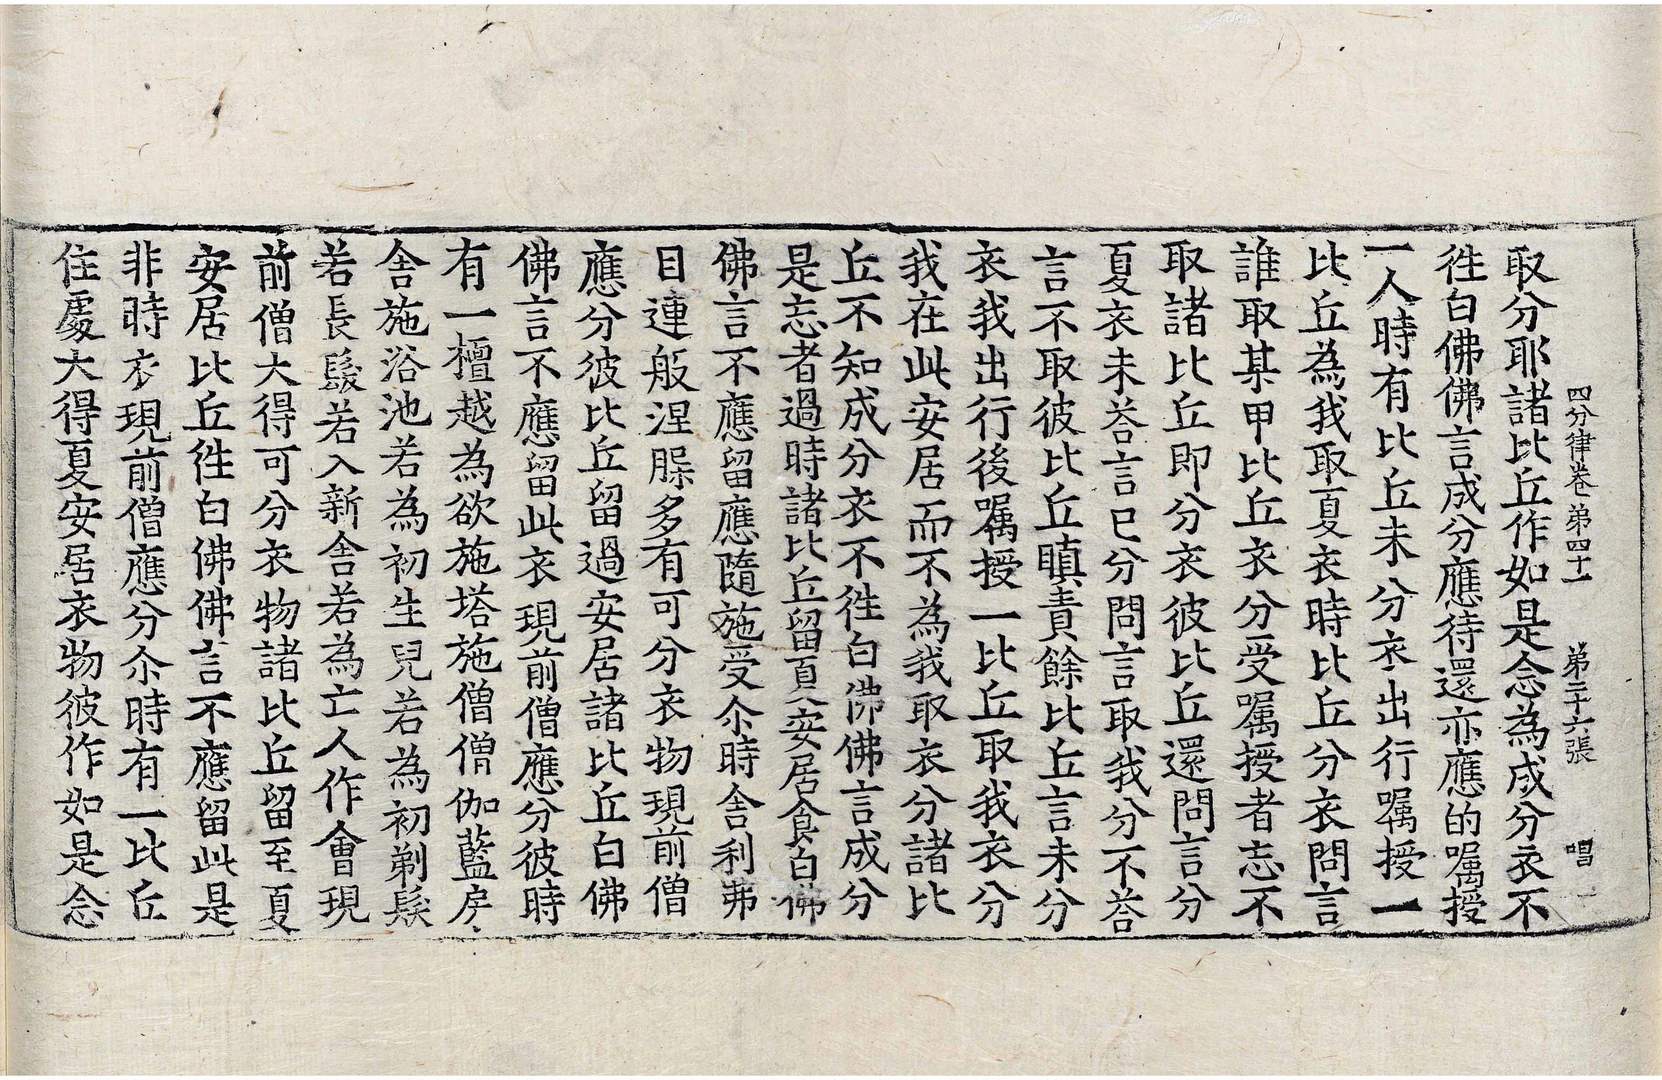 四分律卷第四十一 第二十六張 唱
取分耶諸比丘作如是念為成分衣不
徃白佛佛言成分應待還亦應的嘱授
一人時有比丘未分衣出行嘱授一
比丘為我取夏衣時比丘分衣問言
誰取某甲比丘衣分受嘱授者忘不
取諸比丘即分衣彼比丘還問言分
夏衣未荅言已分問言取我分不荅
言不取彼比丘瞋責餘比丘言未分
衣我出行後嘱授一比丘取我衣分
我在此安居而不為我取衣分諸比
丘不知成分衣不徃白佛佛言成分
是忘者過時諸比丘留夏安居食白佛
佛言不應留應隨施受尒時舍利弗
目連般涅脲多有可分衣物現前僧
應分彼比丘留過安居諸比丘白佛
佛言不應留此衣現前僧應分彼時
有一檀越為欲施塔施僧僧伽藍房
舍施浴池若為初生兒若為初剃髮
若長髮若入新舍若為亡人作會現
前僧大得可分衣物諸比丘留至夏
安居比丘徃白佛佛言不應留此是
非時衣現前僧應分尒時有一比丘
住處大得夏安居衣物彼作如是念